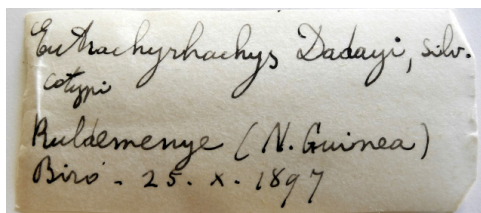 Eutrachyrhachys Dadayi, Silv.
cotypi
Ruldemenye (N. Guinea)
Biró - 25. X. 1897